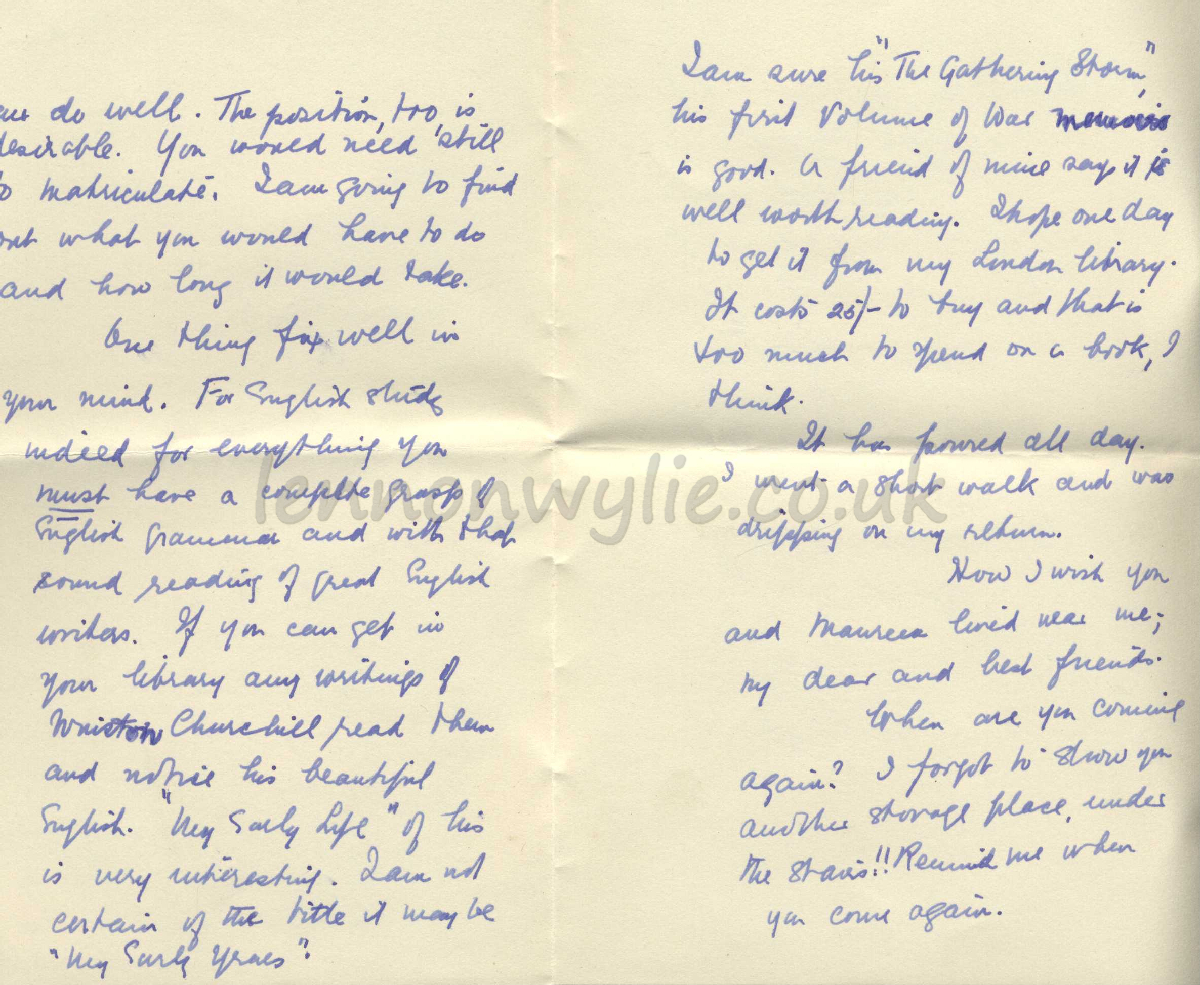 do well. The position, too, is
desirable. You would need still
to matriculate. I am going to find
out what you would have to do
and how long it would take.
One thing fix well in
your mind. For English study
indeed for everything you
must have a complete grasp of
English grammar and with that
sound reading of great English
writers. If you can get in
your library any writings of
Winston Churchill read them
and notice his beautiful
English. "My Early Life" of his
is very interesting. I am not
certain of the title it may be
"My Early Years".
I am sure his "The Gathering Storm",
his first Volume of War memoirs
is good. A friend of mine says it is
well worth reading. I hope one day
to get it from my London library.
It costs 25/- to buy and that is
too much to spend on a book, I
think.
It has poured all day.
I went a short walk and was
dripping on my return.
How I wish you
and Maureen lived near me;
my dear and best friends.
When are you coming
again? I forgot to show you
another storage place, under
the stairs!! Remind me when
you come again.
lennonwylie.co.uk